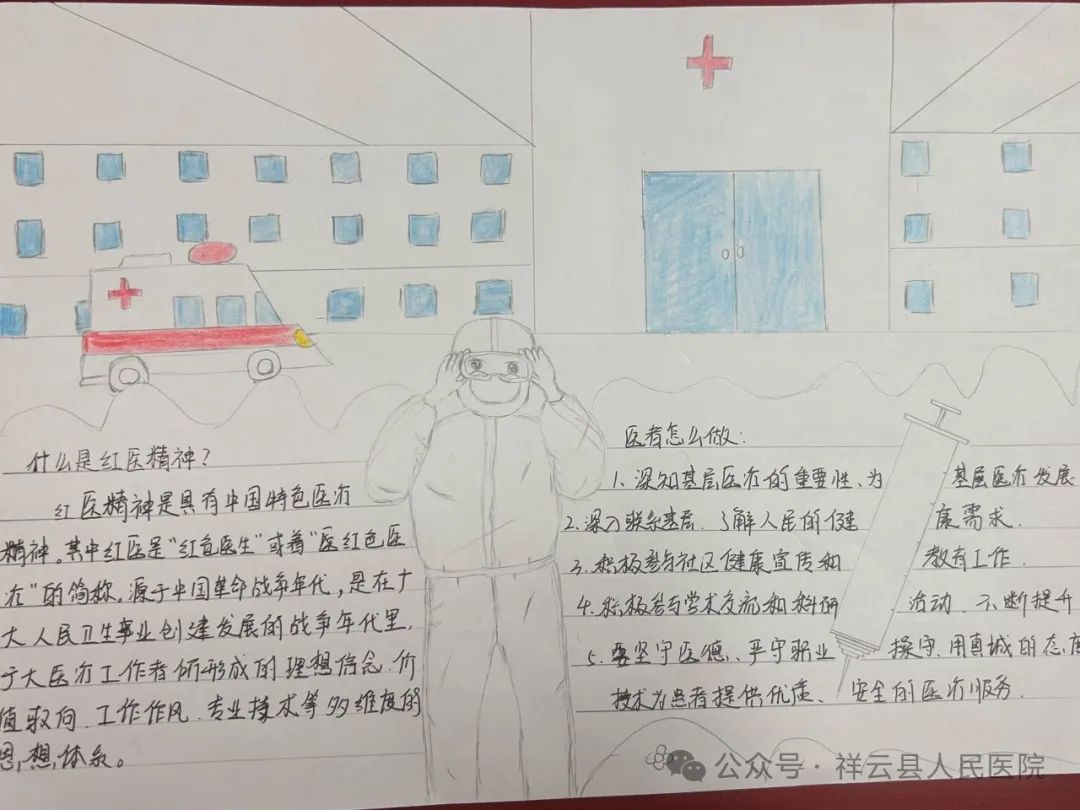 什么是红医精神?
红医精神是具有中国特色医疗
精神。其中红医是"红色医生"或者"医红色医
疗"的简称。源于中国革命战争年代,是在广
大人民卫生事业创建发展的战争年代里,
于大医疗工作者所形成的理想信念、价
值取向、工作作风、专业技术等多维度的
思想体系。
医者怎么做:
1、深知基层医疗的重要性、为 基层医疗发展
2.深入联系基层、了解人民的健 康需求.
3.积极参与社区健康宣传和 教育工作.
4.积极参与学术交流和科研 活动、不断提升
5.要坚守医德、严守职业 操守、用真诚的态度
技术为患者提供优质、安全的医疗服务.
公众号·祥云县人民医院